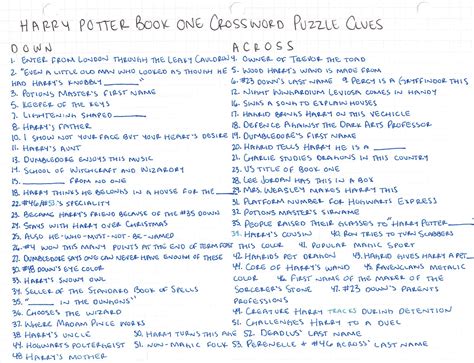 HARRY POTTER BOOK ONE CROSSWORD PUZZLE CLUES
DOWN
1. ENTER FROM LONDON THROUGH THE LEAKY CAULDRON
2. "EVEN A LITTLE OLD MAN WHO LOOKED AS THOUGH HE
HAD HARRY'S KNOBBLY
3. POTIONS MASTER'S FIRST NAME
5. KEEPER OF THE KEYS
7. LIGHTENING SHAPED
8. HARRY'S FATHER
10. I SHOW NOT YOUR FACE BUT YOUR HEART'S DESIRE
11. HARRY'S AUNT
13. DUMBLEDORE ENJOYS THIS MUSIC
14. SCHOOL OF WITCHCRAFT AND WIZARDRY
15. FROM NO ONE
18. HARRY THINKS HE BELONGS IN A HOUSE FOR THE
22. SPECIALITY
23. BECAME HARRY'S FRIEND BECAUSE OF THE #35 DOWN
24. STAYS WITH HARRY OVER CHRISTMAS
25. ALSO HE-WHO-MUST-NOT-BE-NAMED
26. #4 WON THIS MANY POINTS AT THE END OF TERM FEAST
27. DUMBLEDORE SAYS ONE CAN NEVER HAVE ENOUGH OF THESE
30. #48 DOWN'S EYE COLOR
33. HARRY'S SNOWY OWL
34. SELLER OF THE STANDARD BOOK OF SPELLS
35. " IN THE DUNGEONS"
36. CHOOSES THE WIZARD
37. WHERE MADAM PINCE WORKS
43. HARRY'S UNCLE
44. HOGWARTS POLTERGEIST
48. HARRY'S MOTHER
50. HARRY TURNS THIS AGE
51. NON-MAGIC FOLK
ACROSS
4. OWNER OF TREVOR THE TOAD
5. WOOD HARRY'S WAND IS MADE FROM
6. #23 DOWN'S LAST NAME 9. PERCY IS A GRYFFINDOR THIS
12. NIGHT WINGARDIUM LEVIOSA COMES IN HANDY
16. SINGS A SONG TO EXPLAIN HOUSES
17. HAGRID BRINGS HARRY ON THIS VECHICLE
18. DEFENCE AGAINST THE DARK ARTS PROFESSOR
19. DUMBLEDORE'S FIRST NAME
20. HAGRID TELLS HARRY HE IS A
21. CHARLIE STUDIES DRAGONS IN THIS COUNTRY
23. US TITLE OF BOOK ONE
28. LEE JORDAN HAS THIS IN A BOX
29. MRS. WEASLEY MAKES HARRY THIS
31. PLATFORM NUMBER FOR HOGWARTS EXPRESS
32. POTIONS MASTER'S SIRNAME
35. PEOPLE RAISED THEIR GLASSES TO "HARRY POTTER
39. HARRY'S COUSIN 40. RON TRIES TO TURN SCABBERS
THIS COLOR 41. POPULAR MAGIC SPORT
42. HAGRIDS PET DRAGON 43. HAGRID GIVES HARRY A PET
44. CORE OF HARRY'S WAND 45. RAVENCLAWS METALIC
COLOR 46. FIRST NAME OF THE MAKER OF THE
SORCERER'S STONE 47. #23 DOWN'S PARENTS
PROFESSIONS
49. CREATURE HARRY TRACKS DURING DETENTION
51. CHALLENGES HARRY TO A DUEL
52. DEADLUS' LAST NAME
53. PERONELLE + #46 ACROSS' LAST NAME